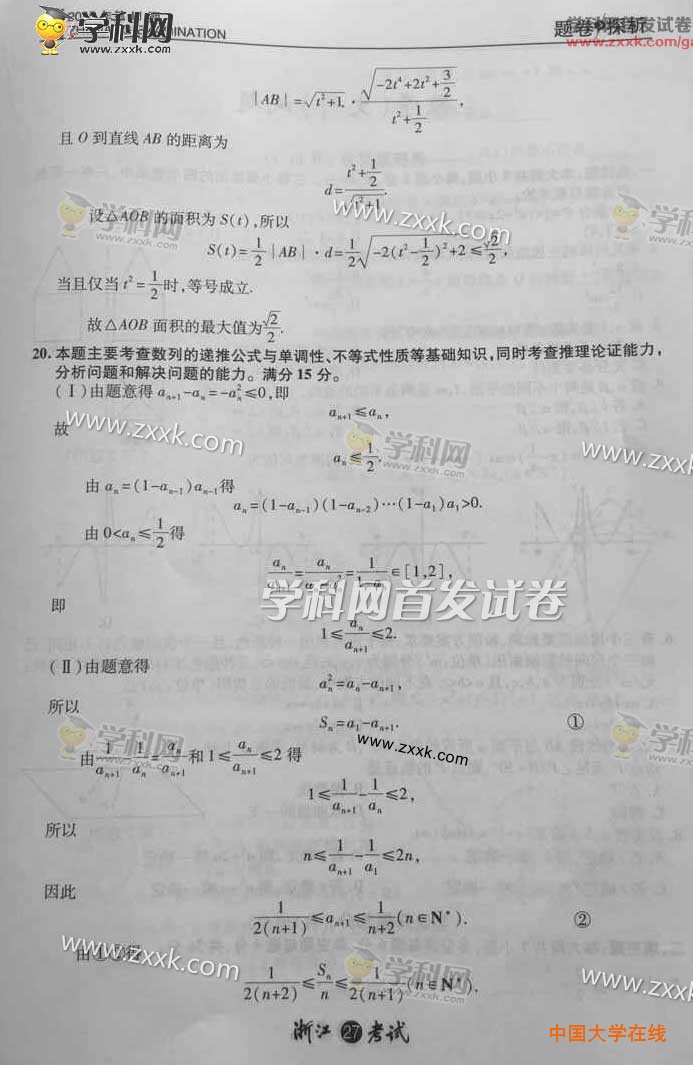 学科网
www.zxxk.com
MINATION
题卷 探析
学科网首发试卷
www.zxxk.com/ga
|AB|=√(t²+1)·√(-2t⁴+2t²+3/2)/(t²+1/2),
且 O 到直线 AB 的距离为
d=(t²+1/2)/√(t²+1).
设△AOB 的面积为 S(t),所以
S(t)=1/2|AB|·d=1/2√(-2(t²-1/2)²+2)≤√2/2,
当且仅当 t²=1/2时,等号成立.
故△AOB 面积的最大值为√2/2.
20. 本题主要考查数列的递推公式与单调性、不等式性质等基础知识,同时考查推理论证能力,
分析问题和解决问题的能力。满分 15 分。
(Ⅰ)由题意得 aₙ₊₁-aₙ=-aₙ²≤0,即
aₙ₊₁≤aₙ,
故
aₙ≤1/2.
由 aₙ=(1-aₙ₋₁)aₙ₋₁得
aₙ=(1-aₙ₋₁)(1-aₙ₋₂)…(1-a₁)a₁>0.
由 0<aₙ≤1/2得
aₙ/aₙ₊₁=aₙ/(aₙ-aₙ²)=1/(1-aₙ)∈[1,2],
学科网首发试卷
即
1≤aₙ/aₙ₊₁≤2.
(Ⅱ)由题意得
aₙ²=aₙ-aₙ₊₁,
所以
Sₙ=a₁-aₙ₊₁. ①
由1/aₙ₊₁-1/aₙ=aₙ/aₙ₊₁和 1≤aₙ/aₙ₊₁≤2 得
1≤1/aₙ₊₁-1/aₙ≤2,
所以
n≤1/aₙ₊₁-1/a₁≤2n,
因此
1/2(n+1)≤aₙ₊₁≤1/(n+2)(n∈N*). ②
由①②得
1/2(n+2)≤Sₙ/n≤1/2(n+1)(n∈N*).
浙江 27 考试
中国大学在线